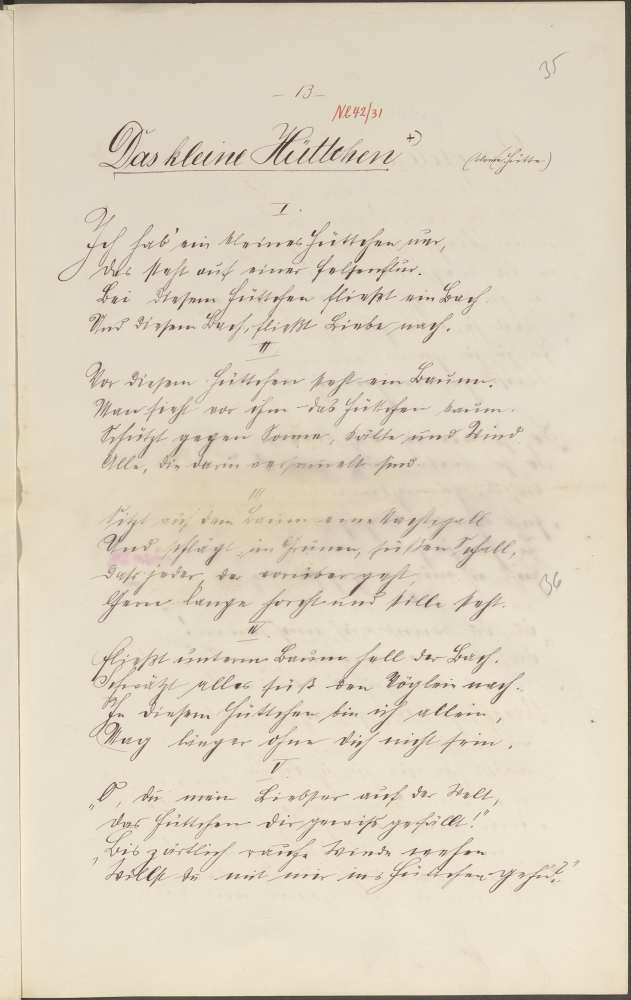 35
- 13 -
Nl 42/31
Das kleine Hüttchen +)
I.
Ich hab' ein kleines Hüttchen nur,
Das steht auf einer Felsenflur.
Bei diesem Hüttchen fließt ein Bach
Und diesem Bach, fließt Liebe nach.
II
Vor diesem Hüttchen steht ein Baum.
Man sieht vor ihm das Hüttchen kaum.
Schützt gegen Sonne, Kälte und Wind
Alle, die darin versammelt sind.
III
Sitzt auf dem Baum eine Nachtigall
Und schlägt im Grünen, süßen Schall,
Dass jeder, der vorüber geht,
Gern lange horcht und stille steht.
36
IV.
Fließt unterm Baum hell der Bach.
Schwätzt alles süß den Vöglein nach.
In diesem Hüttchen bin ich allein,
Mag länger ohne dich nicht sein.
V
„O, du mein Liebster auf der Welt,
Das Hüttchen dir gewiss gefällt!"
„Bis zärtlich rauhe Winde wehen
Willst du mit mir ins Hüttchen gehn?"